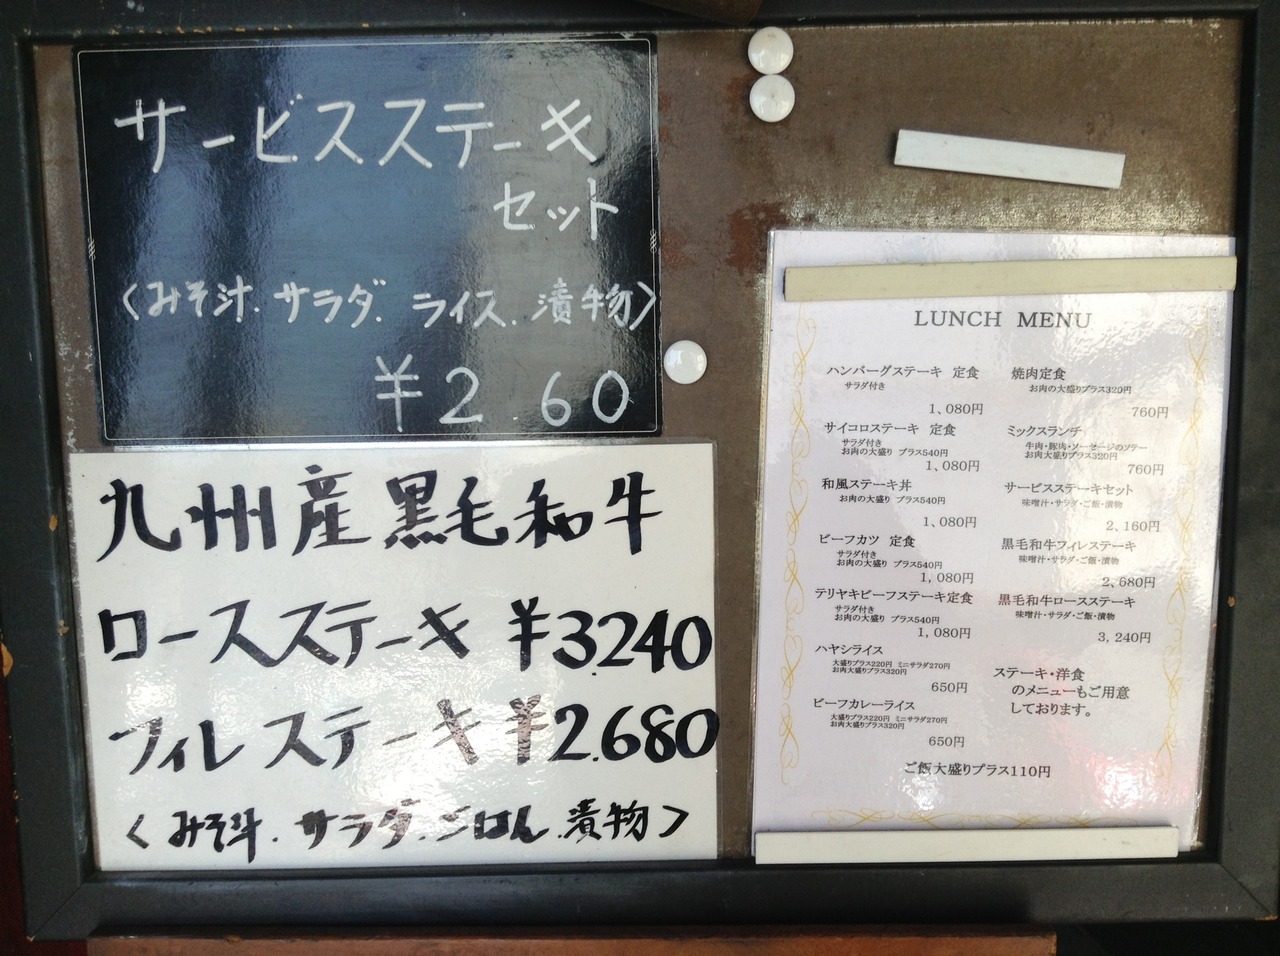 サービスステーキ
セット
〈みそ汁.サラダ.ライス.漬物〉
¥2.60
九州産黒毛和牛
ロースステーキ ¥3.240
フィレステーキ ¥2.680
〈みそ汁.サラダ.ごはん.漬物〉
LUNCH MENU
ハンバーグステーキ 定食
サラダ付き
1,080円
サイコロステーキ 定食
サラダ付き
お肉の大盛り プラス540円
1,080円
和風ステーキ丼
お肉の大盛り プラス540円
1,080円
ビーフカツ 定食
サラダ付き
お肉の大盛り プラス540円
1,080円
テリヤキビーフステーキ定食
サラダ付き
お肉の大盛り プラス540円
1,080円
ハヤシライス
大盛りプラス220円 ミニサラダ270円
お肉大盛りプラス320円
650円
ビーフカレーライス
大盛りプラス220円 ミニサラダ270円
お肉大盛りプラス320円
650円
焼肉定食
お肉の大盛りプラス320円
760円
ミックスランチ
牛肉・豚肉・ソーセージのソテー
お肉大盛りプラス320円
760円
サービスステーキセット
味噌汁・サラダ・ご飯・漬物
2,160円
黒毛和牛フィレステーキ
味噌汁・サラダ・ご飯・漬物
2,680円
黒毛和牛ロースステーキ
味噌汁・サラダ・ご飯・漬物
3,240円
ステーキ・洋食
のメニューもご用意
しております。
ご飯大盛りプラス110円